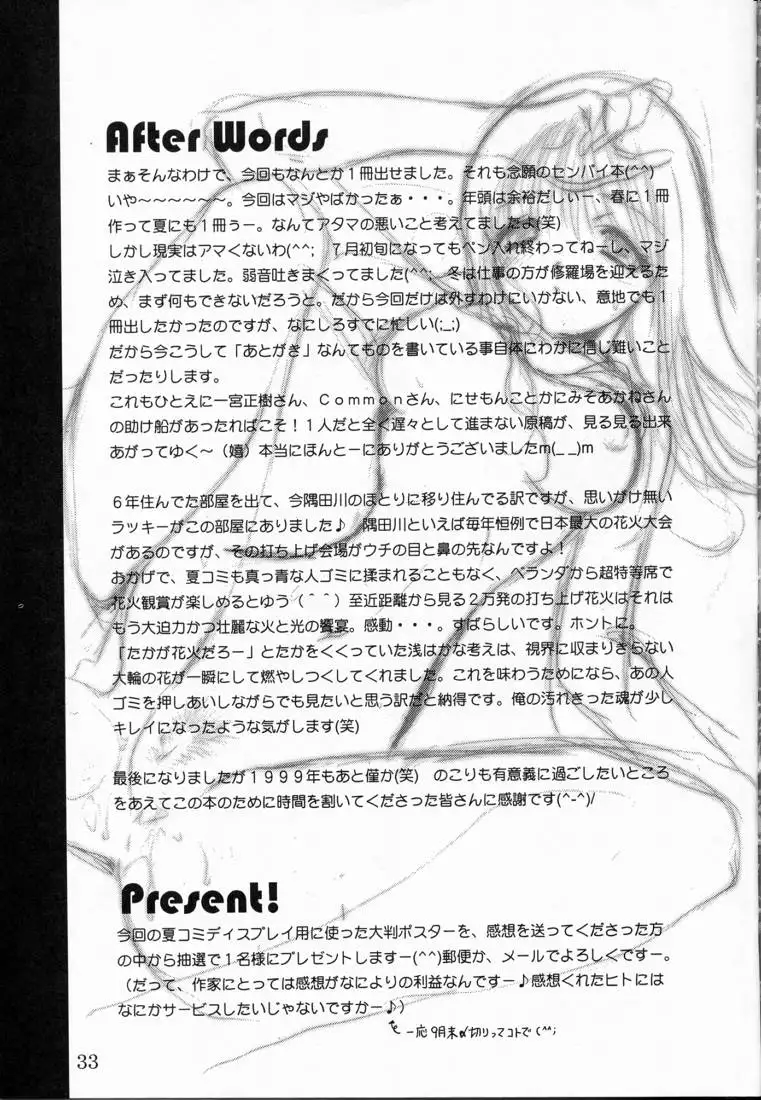 After Words
まぁそんなわけで、今回もなんとか1冊出せました。それも念願のセンパイ本(^^)
いや～～～～～～。今回はマジやばかったぁ・・・。年頭は余裕だしぃー、春に1冊
作って夏にも1冊ぅー。なんてアタマの悪いこと考えてましたよ(笑)
しかし現実はアマくないわ(^^;　7月初旬になってもペン入れ終わってねーし、マジ
泣き入ってました。弱音吐きまくってました(^^;　冬は仕事の方が修羅場を迎えるた
め、まず何もできないだろうと。だから今回だけは外すわけにいかない、意地でも1
冊出したかったのですが、なにしろすでに忙しい(;_;)
だから今こうして「あとがき」なんてものを書いている事自体にわかに信じ難いこと
だったりします。
これもひとえに一宮正樹さん、Commonさん、にせもんことかにみそあかねさん
の助け船があったればこそ！1人だと全く遅々として進まない原稿が、見る見る出来
あがってゆく～（嬉）本当にほんとーにありがとうございましたm(_ _)m
6年住んでた部屋を出て、今隅田川のほとりに移り住んでる訳ですが、思いがけ無い
ラッキーがこの部屋にありました♪　隅田川といえば毎年恒例で日本最大の花火大会
があるのですが、その打ち上げ会場がウチの目と鼻の先なんですよ！
おかげで、夏コミも真っ青な人ゴミに揉まれることもなく、ベランダから超特等席で
花火観賞が楽しめるとゆう（＾＾）至近距離から見る2万発の打ち上げ花火はそれは
もう大迫力かつ壮麗な火と光の饗宴。感動・・・。すばらしいです。ホントに。
「たかが花火だろー」とたかをくくっていた浅はかな考えは、視界に収まりきらない
大輪の花が一瞬にして燃やしつくしてくれました。これを味わうためになら、あの人
ゴミを押しあいしながらでも見たいと思う訳だと納得です。俺の汚れきった魂が少し
キレイになったような気がします(笑)
最後になりましたが1999年もあと僅か(笑)　のこりも有意義に過ごしたいところ
をあえてこの本のために時間を割いてくださった皆さんに感謝です(^-^)/
Present!
今回の夏コミディスプレイ用に使った大判ポスターを、感想を送ってくださった方
の中から抽選で1名様にプレゼントしますー(^^)郵便か、メールでよろしくですー。
（だって、作家にとっては感想がなによりの利益なんですー♪感想くれたヒトには
なにかサービスしたいじゃないですかー♪）
一応9月末〆切りってコトで(^^;
33